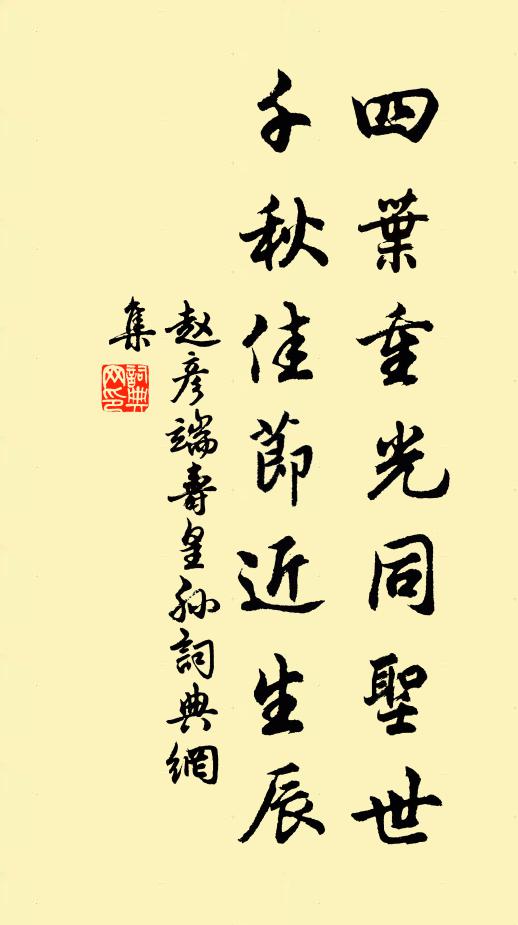 四葉重光同聖世
千秋佳節近生辰
赵彦端壽皇孙詞典網
集
詞典网印